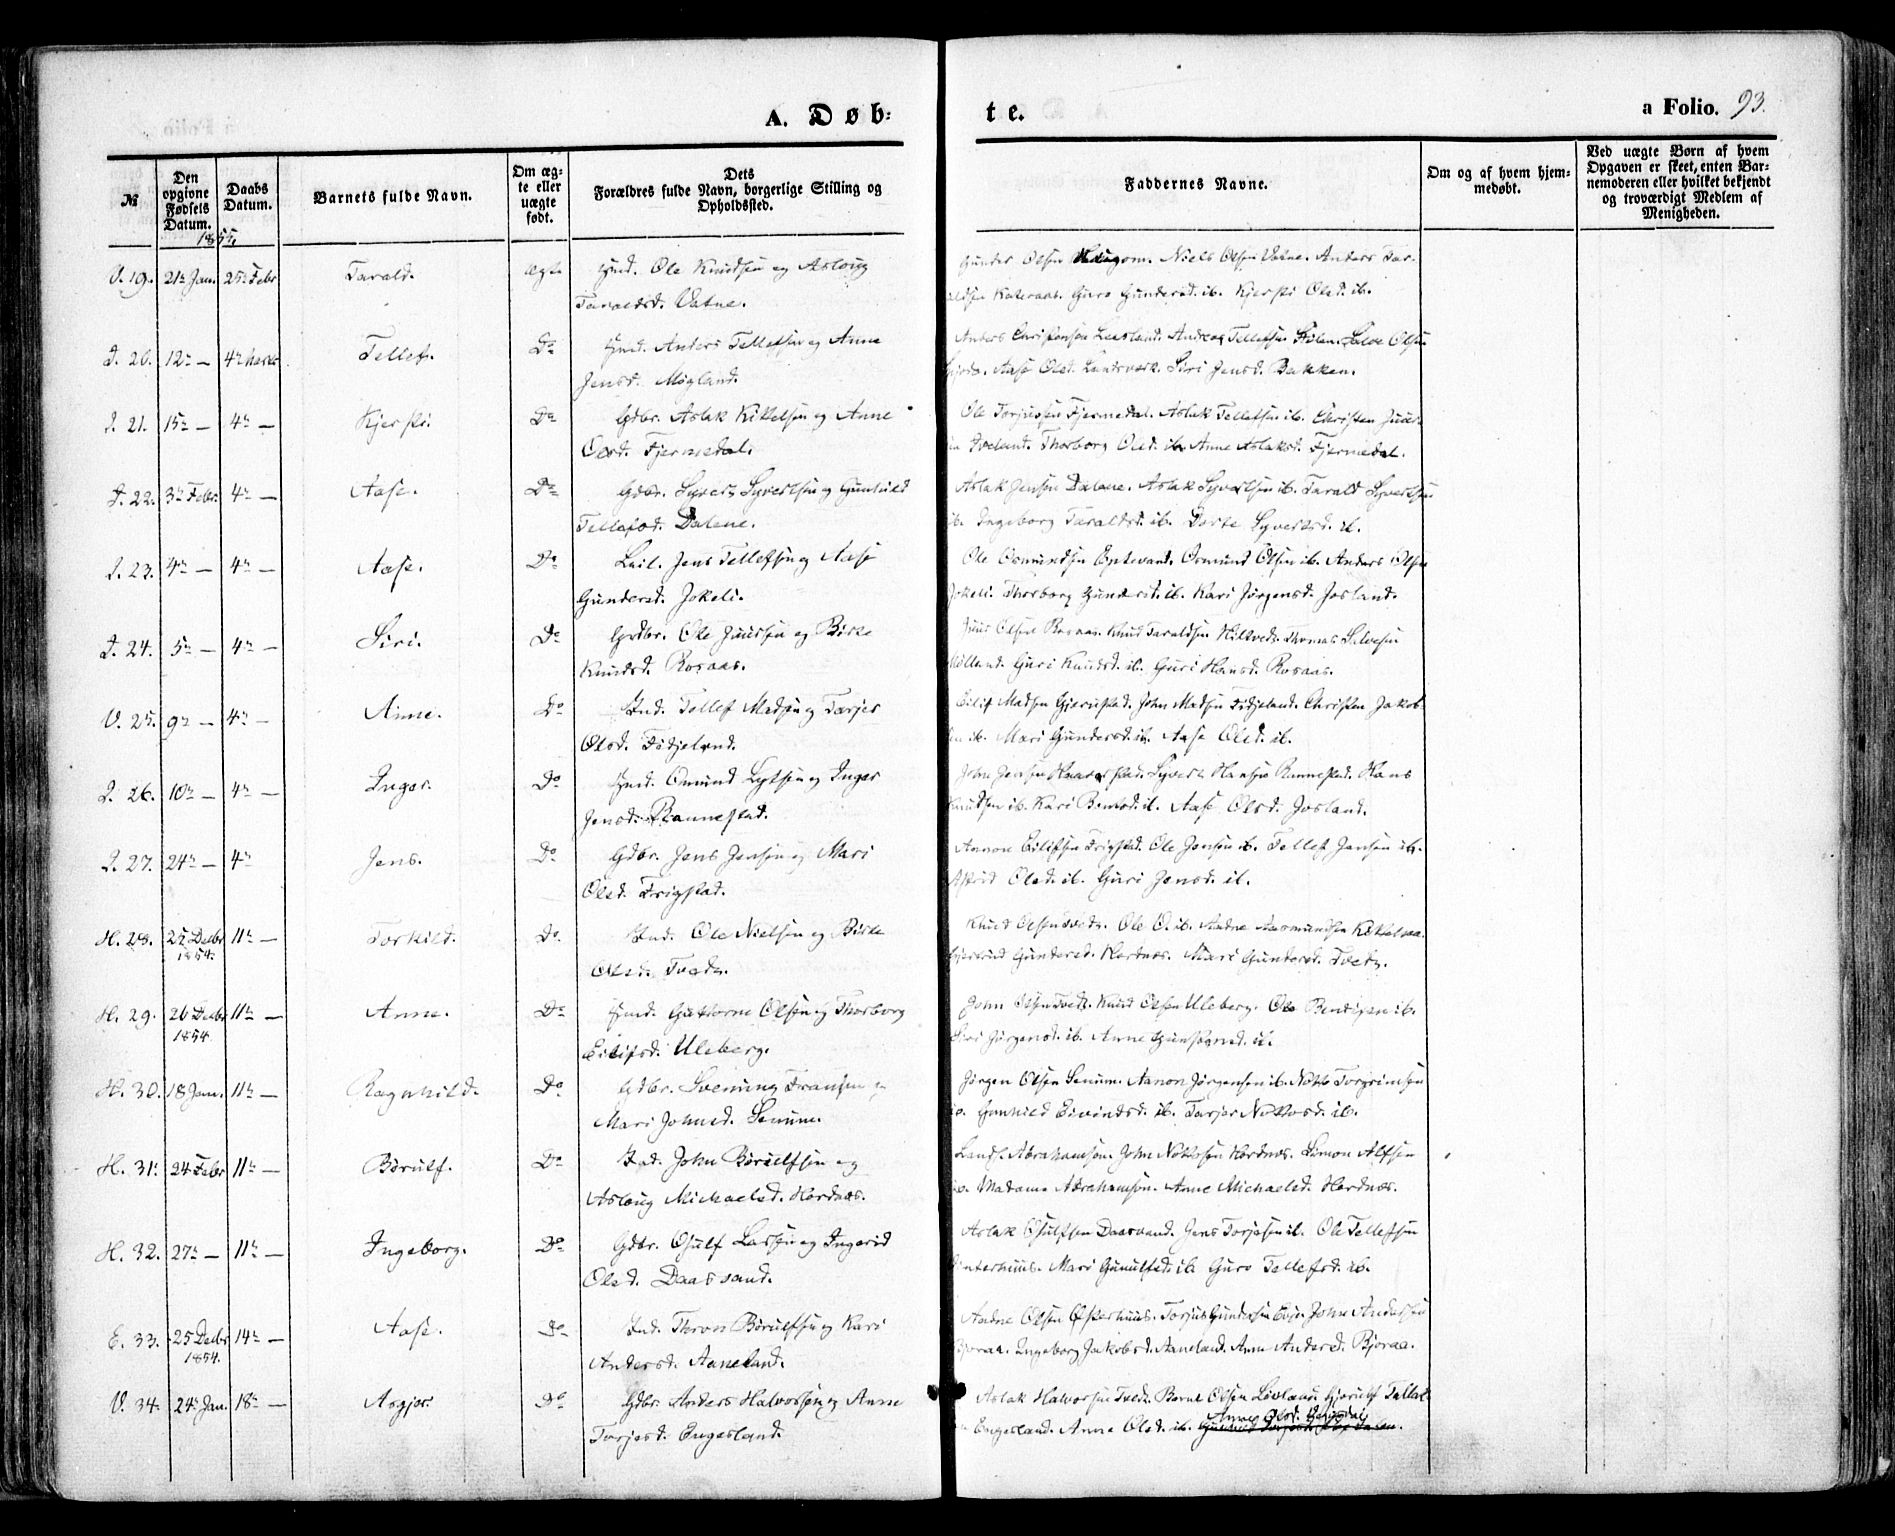 A. Døb=
te.
a Folio. 93.
№
Den opgivne Fødsels Datum.
Daabs Datum.
Barnets fulde Navn.
Om ægte eller uægte født.
Dets Forældres fulde Navn, borgerlige Stilling og Opholdssted.
Faddernes Navne.
Om og af hvem hjemmedøbt.
Ved uægte Børn af hvem Opgaven er skeet, enten Barnemoderen eller hvilket bekjendt og troværdigt Medlem af Menigheden.
1855.
V. 19. 21de Jan. 25de Febr Tarald. ægte Gmd. Ole Knudsen og Aslaug
Taraldsd. Vatne.
Gunder Olsen Haugom. Niels Olsen Vatne. Anders Tar-
aldsen Kateraas. Guro Gundersd. ib. Kjersti Olsd. ib.
I. 20. 12te — 4de Marts Tellef. Do Gmd. Anders Tellefsen og Anne
Jensd. Møgland.
Anders Christensen Lausland. Andreas Tellefsen Stølen. Salve Olsen
Aase Olsd. Landsværk. Siri Jensd. Bakken.
I. 21. 15de — 4de — Kjersti. Do Gdbr. Aslak Kittelsen og Anne
Olsd. Fjermedal.
Ole Torjussen Fjermedal. Aslak Tellefsen ib. Christen Juul-
Iveland. Thorborg Olsd. ib. Anne Aslaksd. Fjermedal.
I. 22. 3de Febr. 4de — Aase. Do Gdbr. Syvert Syvertsen og Gunhild
Tellefsd. Dalene.
Aslak Jensen Dalene. Aslak Syvertsen ib. Tarald Syvertsen
ib. Ingeborg Taraldsd. ib. Dorte Syvertsd. ib.
I. 23. 4de — 4de — Aase. Do Leil. Jens Tellefsen og Aase
Gundersd. Jokeli.
Ole Osmundsen Eptevand. Osmund Olsen ib. Anders Olsen
Jokeli. Thorborg Gundersd. ib. Kari Jørgensd. Josland.
I. 24. 5te — 4de — Siri. Do Gdbr. Ole Juulsen og Birte
Knudsd. Rosaas.
Juul Olsen Rosaas. Knud Taraldsen Hiltveds. Thomas Salvesen
Mølland. Guri Knudsd. ib. Guri Hansd. Rosaas.
V. 25. 9de — 4de — Anne. Do Ind. Tellef Madsen og Tarjer
Olsd. Fidjeland.
Eilif Madsen Gjerustad. John Madsen Fidjeland. Christen Jakob-
sen ib. Mari Gundersd. ib. Aase Olsd. ib.
I. 26. 10de — 4de — Inger. Do Gmd. Omund Lyttsen og Inger
Jensd. Rannestad.
John Jensen Syvert Hansen Rannestad. Hans
Knudsen ib. Kari Berntsd. ib. Aase Olsd. Josland.
I. 27. 24de — 4de Jens. Do Gdbr. Jens Jensen og Mari
Olsd. Frigstad.
Aanon Eilifsen Frigstad. Ole Jensen ib. Tellef Jensen ib.
Astrid Olsd. ib. Guri Jensd. ib.
H. 28. 25de Decbr 1854. 11te — Torkild. Do Ind. Ole Nielsen og Birte
Olsd. Tvedt.
Knud Olsen Tvedt. Ole O. ib. Aadne Aasmundsen
Gundersd. Hordnæs. Mari Gundersd. Tvedt.
H. 29. 26 Decbr 1854 11te — Anne. Do Gmd. Guttorm Olsen og Thorborg
Eilifsd. Uleberg.
John Olsen Tvedt. Knud Olsen Uleberg. Ole Bentsen ib.
Siri Jørgensd. ib. Anne ib.
H. 30. 18 Jan. 11te — Ragnhild. Do Gdbr. Svenung Fransen og
Mari Johnsd. Senum.
Jørgen Olsen Senum. Aanon Jørgensen ib. Notto Torgrimsen
ib. Gunhild Eivindsd. ib. Tarjer Nottosd. ib.
H. 31. 24 Febr 11te — Børulf. Do Ind. John Børulfsen og
Aslaug Michaelsd. Hordnæs.
Landh. Abrahamson. John Nottosen Hordnæs. Simon Alfsen
ib. Madame Abrahamson. Anne Michaelsd. Hordnæs.
H. 32. 27de — 11te — Ingeborg. Do Gdbr. Osulf Larsen og Ingerid
Olsd. Daasvand.
Aslak Osulfsen Daasvand. Jens Torjesen ib. Ole Tellefsen
Mari Gunulfsd. ib. Guro Tellefsd. ib.
E. 33. 25 Decbr 1854. 14de — Aase. Do Ind. Thron Børulfsen og Kari
Andersd. Aaneland.
Aadne Olsen Østerhuus. Torjus Gundersen Evje. John Andersen
Bjoraa. Ingeborg Jakobsd. Aaneland. Anne Andersd. Bjoraa.
V. 34. 24de Jan. 18de — Asgjer. Do Gdbr. Anders Halvorsen og Anne
Torjesd. Engesland.
Aslak Halvorsen Tvedt. Bernt Olsen Løvland. Gjerulf Tellef-
Engesland. Anne Olsd. ib. Anne Olsd.